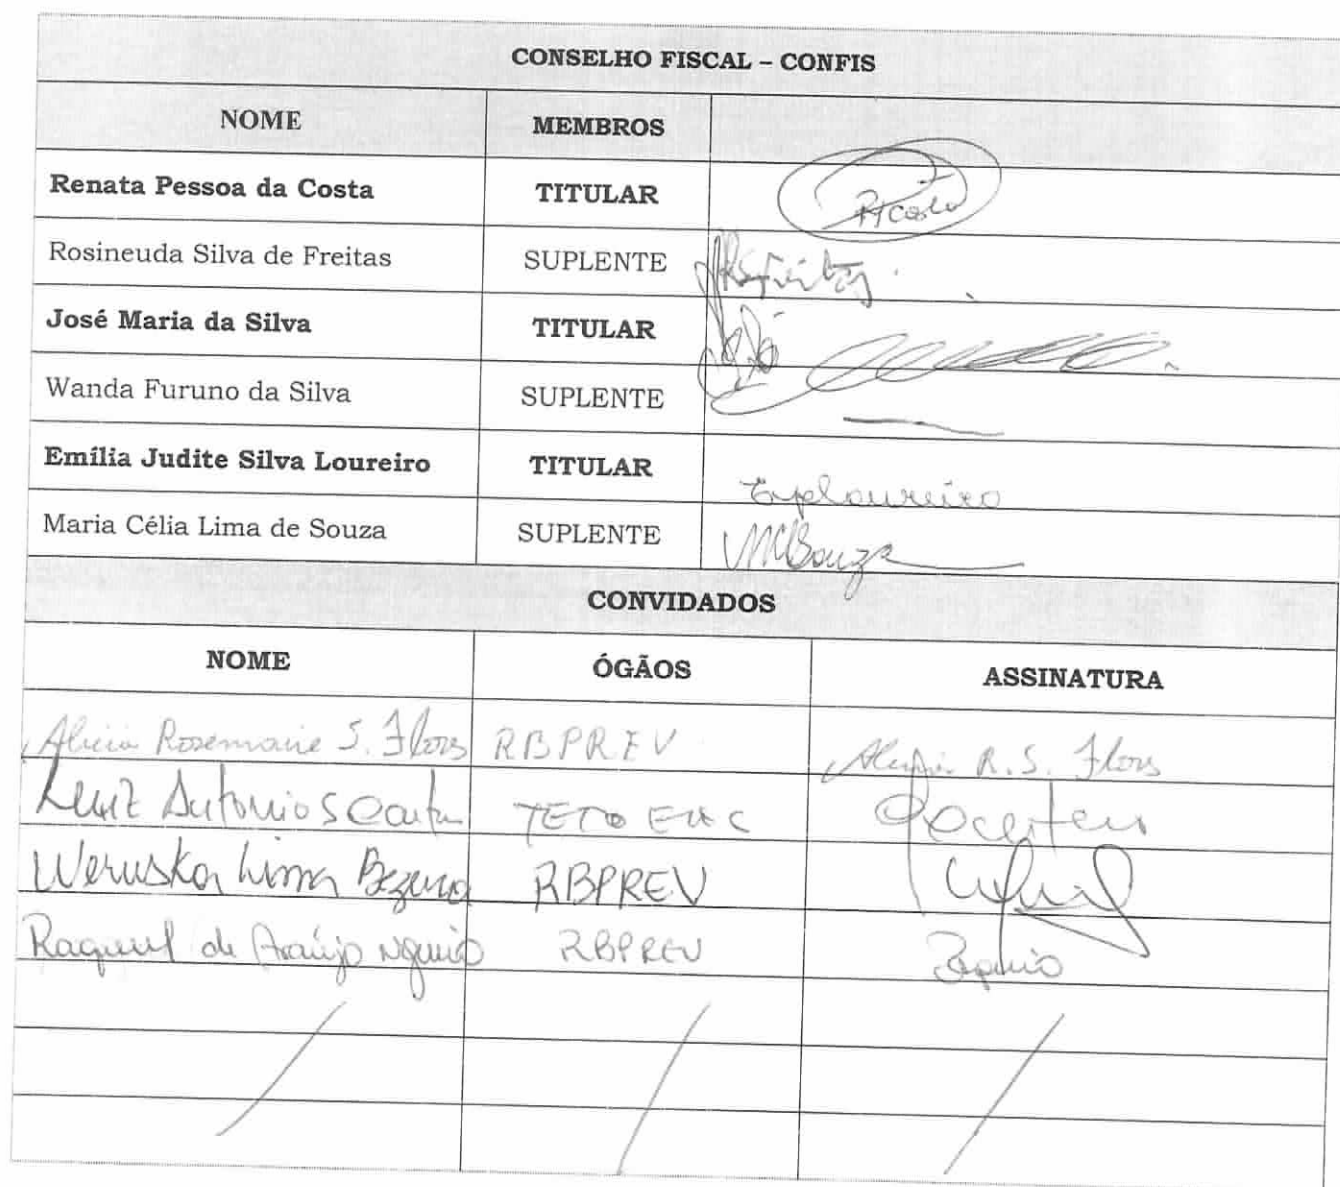 CONSELHO FISCAL – CONFIS
NOME MEMBROS
Renata Pessoa da Costa TITULAR
Rosineuda Silva de Freitas SUPLENTE
José Maria da Silva TITULAR
Wanda Furuno da Silva SUPLENTE
Emília Judite Silva Loureiro TITULAR
Maria Célia Lima de Souza SUPLENTE MCSouza
CONVIDADOS
NOME ÓGÃOS ASSINATURA
Alicia Rosemarie S. Flores RBPREV Alicia R. S. Flores
Luiz Antonio S TETO
Weruska Lima Bezerra RBPREV
Raquel de Araújo RBPREV